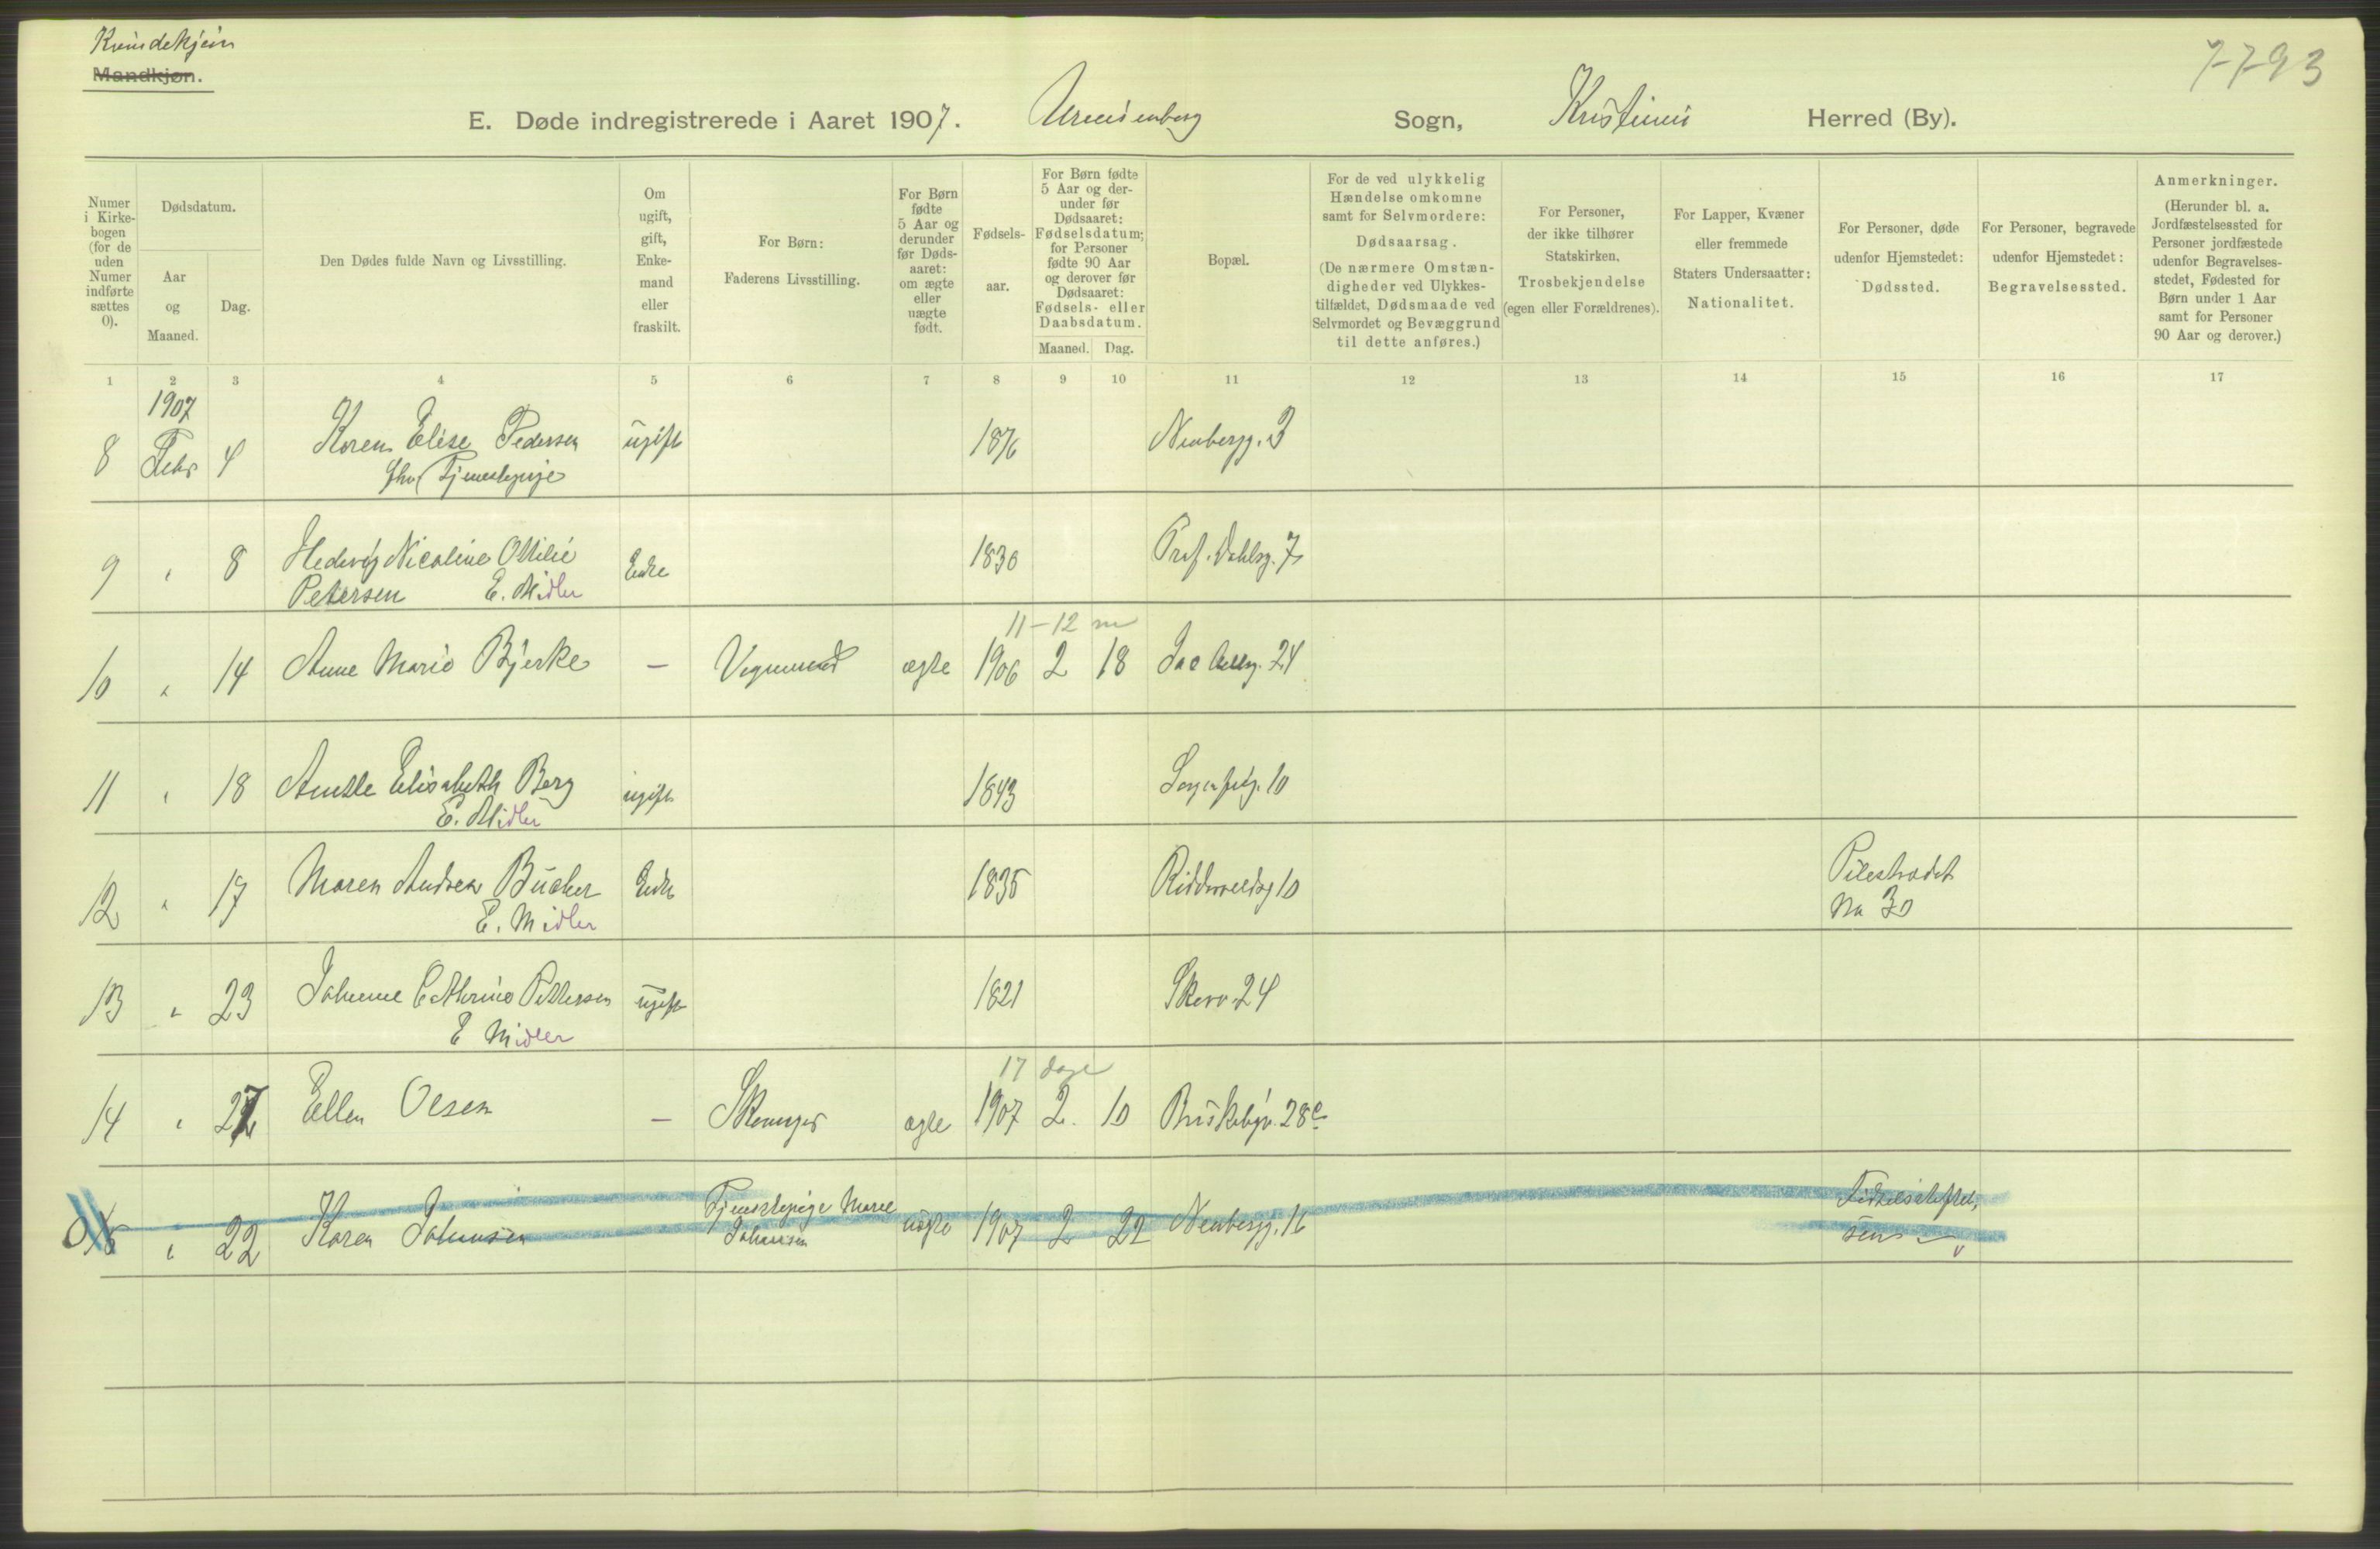 Kvindekjøn
Mandkjøn.
7-793
E. Døde indregistrerede i Aaret 1907. Uranienborg Sogn, Kristiania Herred (By).
Numer i Kirkebogen (for de uden Numer indførte sættes 0).
Dødsdatum.
Aar og Maaned.
Dag.
Den Dødes fulde Navn og Livsstilling.
Om ugift, gift, Enkemand eller fraskilt.
For Børn: Faderens Livsstilling.
For Børn fødte 5 Aar og derunder før Dødsaaret: om ægte eller uægte født.
Fødselsaar.
For Børn fødte 5 Aar og derunder før Dødsaaret: Fødselsdatum; for Personer fødte 90 Aar og derover før Dødsaaret: Fødsels- eller Daabsdatum.
Maaned. Dag.
Bopæl.
For de ved ulykkelig Hændelse omkomne samt for Selvmordere: Dødsaarsag. (De nærmere Omstændigheder ved Ulykkestilfældet, Dødsmaade ved Selvmordet og Bevæggrund til dette anføres.)
For Personer, der ikke tilhører Statskirken, Trosbekjendelse (egen eller Forældrenes).
For Lapper, Kvæner eller fremmede Staters Undersaatter: Nationalitet.
For Personer, døde udenfor Hjemstedet: Dødssted.
For Personer, begravede udenfor Hjemstedet: Begravelsessted.
Anmerkninger. (Herunder bl. a. Jordfæstelsessted for Personer jordfæstede udenfor Begravelsesstedet, Fødested for Børn under 1 Aar samt for Personer 90 Aar og derover.)
1 2 3 4 5 6 7 8 9 10 11 12 13 14 15 16 17
1907
8 Febr 4 Karen Elise Pedersen ugift 1876 Neubergg. 3
fhv. Tjenestepige
9 " 8 Hedevig Nicoline Ottilie Enke 1830 Prof. Dahlsg. 7
Petersen E. Midler
11-12 m
10 " 14 Anne Marie Bjerke — Vognmand ægte 1906 2 18 Jac Aallsg. 24
11 " 18 Elisabeth Berg ugift 1843 10
E. Midler
12 " 17 Maren Andrea Enke 1835 Riddervoldsg 10 Pilestrædet
E. Midler No 30
13 " 23 Johanne Cathrine Pettersen ugift 1821 24
E Midler
17 dage
14 " 27 Ellen Olsen — ægte 1907 2. 10 Briskebyv. 28c
0 " 22 Karen Johansen Tjenestepige Marie uægte 1907 2 22 Neubergg. 16 Fødselsstiftelsen
Johansen